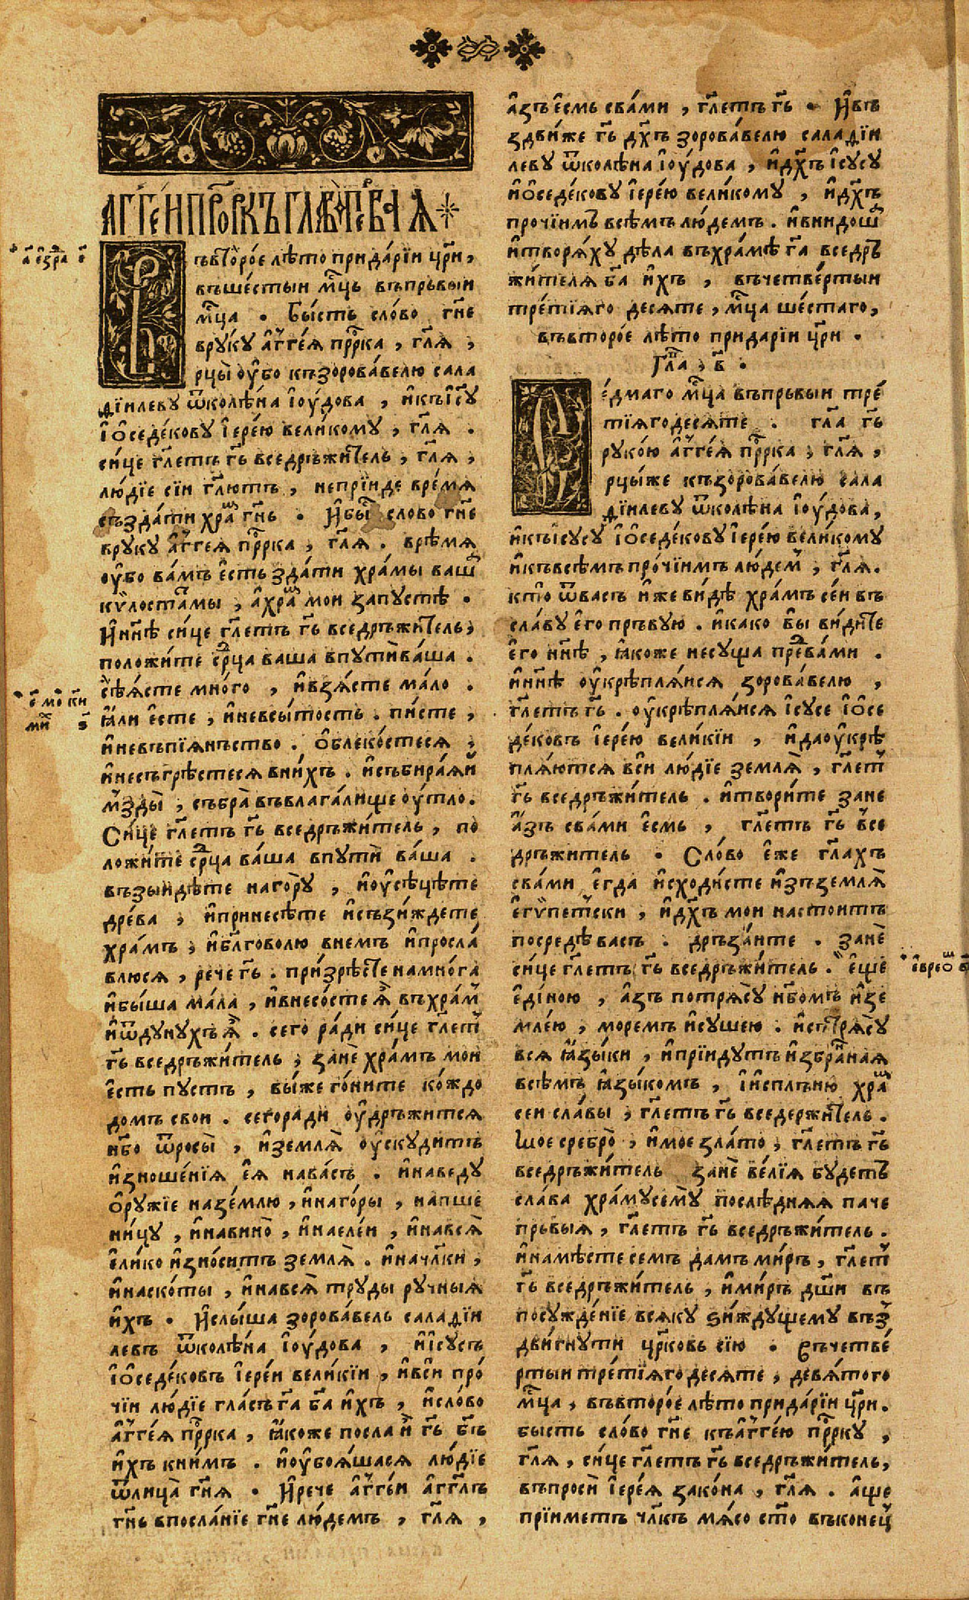 АГГЕИ ПРРОКЪ ГЛАВА ПЕРВАЯ
а҃ е́зра е҃
ъвторо́е лѣ́то прида́рїи цр҃и,
въшестыи мц҃ъ въпрьвыи
мц҃а . Бы́сть сло́во гн҃е
вруку агге́я прр҃ка , гл҃я ,
рцы̀ оу҆́бо къзорова́велю сала
дїи́леву ѿколѣ́на і҆оу́дова , и҆къі҆с҃у
і҆о҆седе́кову і҆ере́ю вели́кому , гл҃я .
си́це гл҃етъ гь҃ вседръжи́тель , гл҃я ,
лю́дїе сїи гл҃ютъ , непрїи́де вре́мя
създа́ти хра гн҃ь . И҆бы́ сло́во гн҃е
вруку агге́я прр҃ка , гл҃я . врѣ́мя
оу҆́бо ва́мъ е҆́сть зда́ти хра́мы ваш
кѵ́лоста́мы , а҆хра мои запустѣ̀ .
И҆нн҃ѣ си́це гл҃етъ гь҃ вседръжи́тель ,
положи́те срц҃а ва́ша впутѝва́ша .
сѣ́ясте мно́го , и҆взя́сте ма́ло .
е҃ мо҃ кн҃и
ми 
ꙗ҆́ли е҆́сте , и҆невсы́тость . пи́сте ,
и҆невъпїя́нъство . о҆блеко́стеся ,
и҆несъгрѣ́стеся вни́хъ . и҆събира́яи
мзды̀ , събра̀ въвлага́лище оу҆́тло .
Си́це гл҃етъ гь҃ вседръжи́тель , по
ложи́те срц҃а ва́ша впутѝ ва́ша .
възы́идѣте наго́ру , и҆оу҆сѣцѣ́те
дре́ва , и҆принесѣ́те и҆съзи́ждете
хра́мъ , и҆блг҃оволю внемъ и҆просла́
влюся , рече гь҃ . призрѣ́сте намно́га
и҆бы́ша ма́ла , и҆внесо́сте я҆ въхра́м
и҆ѿду́нухъ я҆ . сего ра́ди си́це гл҃ет
гь҃ вседръжи́тель , занѐ хра́мъ мои
е҆́сть пустъ , вы́же го́ните ко́ждо
домъ свои . сего́ра́ди оу҆дръжи́тся
нб҃о ѿросы̀ , и҆земля̀ оу҆скуди́тъ
и҆зноше́нїя е҆я̀ нава́съ . и҆наведу
о҆ру́жїе назе́млю , и҆наго́ры , напше
ни́цу , и҆навино̀ , и҆наеле́и , и҆нався̀
е҆ли́ко и҆зно́ситъ земля̀ . и҆начл҃ки ,
и҆наско́ты , и҆нався̀ труды ручныя
и҆́хъ . И҆слы́ша зорова́вель саладїи
левъ ѿколѣ́на і҆оу́дова , и҆і҆су́съ
і҆о҆седе́ковъ і҆ере́и вели́кїи , и҆вси про́
чїи лю́дїе гла́съ га҃ ба҃ и҆́хъ , и҆сло́во
агге́я прр҃ка , ꙗ҆́коже посла и҆ гь҃ бг҃ъ
и҆́хъ кни́мъ . и҆оу҆боя́шася лю́дїе
ѿлица̀ гн҃я . И҆рече агге́и агг҃лъ
гн҃ь впосла́нїе гн҃е лю́демъ , гл҃я ,
а҆зъ е҆́смь сва́ми , гл҃етъ гь҃ . И҆въ
здви́же гь҃ дх҃ъ зорова́велю саладїи
леву ѿколѣ́на і҆оу́дова , и҆дх҃ъ і҆су́су
и҆о҆седе́кову і҆ере́ю вели́кому , и҆дх҃ъ
про́чїимъ всѣ́мъ лю́демъ . и҆внидош
и҆творя́ху дѣ́ла въхра́мѣ га҃ вседръ
жи́теля ба҃ и҆́хъ , въчетве́ртыи
тре́тїяго деся́те , мц҃а ше́стаго ,
въвторо́е лѣ́то прида́рїи цр҃и .
Гла , в҃ .
е́дмаго мц҃а въпрьвыи тре́
тїягодеся́те . гл҃а гь҃
руко́ю агге́я прр҃ка , гл҃я ,
рцы́же къзорова́велю сала
дїи́леву ѿколѣ́на і҆оу́дова ,
и҆къі҆су́су і҆о҆седе́кову і҆ере́ю вели́кому
и҆къвсѣ́мъ про́чїимъ лю́дем , гл҃я .
кто ѿва́съ и҆́же ви́дѣ хра́мъ се́и въ
сла́ву е҆го пръ́вую . и҆ка́ко вы ви́дите
е҆го нн҃ѣ , ꙗ҆́коже несу́ща пре́ва́ми .
и҆нн҃ѣ оу҆крѣпля́ися зорова́велю ,
гл҃етъ гь҃ . оу҆крѣпля́ися і҆су́се і҆о҆се
де́ковъ і҆ере́ю вели́кїи , и҆даоукрѣ
пля́ются вси лю́дїе земля̀ , гл҃ет
гь҃ вседръжи́тель . и҆твори́те зане
а҆́зъ сва́ми е҆́смь , гл҃етъ гь҃ все
дръжи́тель . Сло́во е҆́же гл҃ахъ
сва́ми е҆гда и҆сходи́сте и҆зъземля̀
е҆гѵ́петски , и҆дх҃ъ мои настои́тъ
посредѣ ва́съ . дръза́ите . занѐ
си́це гл҃етъ гь҃ вседръжи́тель . е҆ще
е҆ди́ною , а҆́зъ потрясу нб҃омъ и҆зе
мле́ю , мо́ремъ и҆су́шею . и҆сътрясу
вся ꙗ҆зы́ки , и҆прїи́дутъ и҆збра́нная
всѣ́мъ ꙗ҆зы́комъ , і҆и҆сплъню хра
сеи сла́вы , гл҃етъ гь҃ вседержи́тель .
Мое сребро̀ , и҆мое зла́то , гл҃етъ гь҃
вседръжи́тель занѐ ве́лїя бу́детъ
сла́ва хра́мусему послѣ́дняя па́че
прьвыя , гл҃етъ гь҃ вседръжи́тель .
и҆намѣ́сте семъ да́мъ ми́ръ , гл҃ет
гь҃ вседръжи́тель , и҆ми́ръ дш҃и въ
посужде́нїе вся́ку ѕи́ждущему въз
дви́гнути цр҃ковь сїю . Въчетве́
ртыи тре́тїягодеся́те , девя́того
мц҃а , въвторо́е лѣ́то прида́рїи цр҃и .
бысть сло́во гн҃е къагге́ю прр҃ку ,
гл҃я , си́це гл҃етъ гь҃ вседръжи́тель ,
въпросѝ і҆ере́я зако́на , гл҃я . а҆ще
прїи́метъ чл҃къ мя́со сто въконец